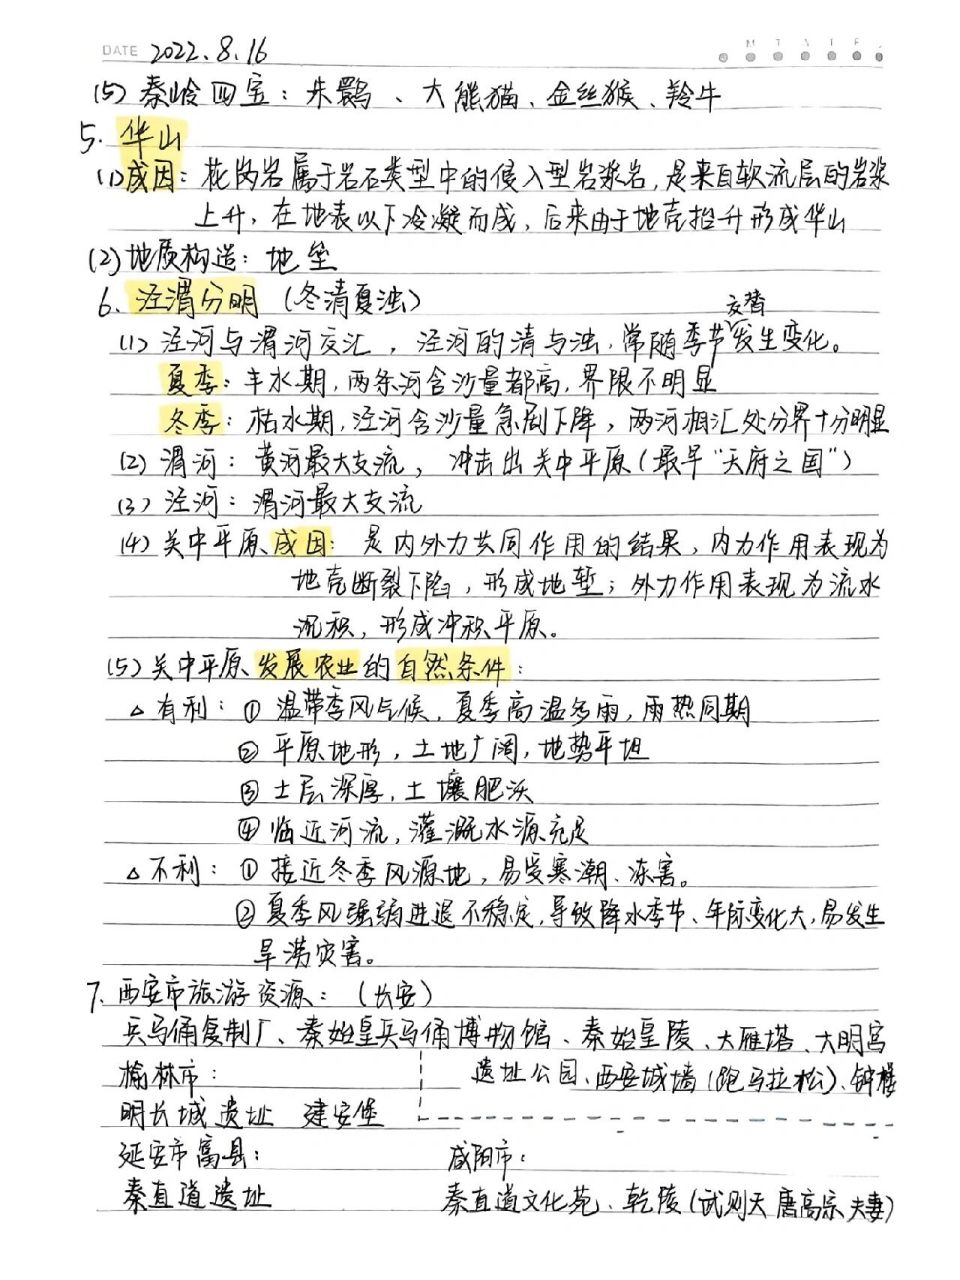 DATE 2022.8.16
M T W T F S
(5) 秦岭四宝：朱鹮、大熊猫、金丝猴、羚牛
5. 华山
(1)成因：花岗岩属于岩石类型中的侵入型岩浆岩，是来自软流层的岩浆
上升，在地表以下冷凝而成，后来由于地壳抬升形成华山
(2)地质构造：地垒
6. 泾渭分明 (冬清夏浊)
交替
(1) 泾河与渭河交汇，泾河的清与浊，常随季节发生变化。
夏季：丰水期，两条河含沙量都高，界限不明显
冬季：枯水期，泾河含沙量急剧下降，两河相汇处分界十分明显
(2) 渭河：黄河最大支流，冲击出关中平原(最早“天府之国”)
(3) 泾河：渭河最大支流
(4) 关中平原成因：是内外力共同作用的结果，内力作用表现为
地壳断裂下陷，形成地堑；外力作用表现为流水
沉积，形成冲积平原。
(5)关中平原发展农业的自然条件：
△有利：① 温带季风气候，夏季高温多雨，雨热同期
② 平原地形，土地广阔，地势平坦
③ 土层深厚，土壤肥沃
④ 临近河流，灌溉水源充足
△不利：① 接近冬季风源地，易受寒潮、冻害。
② 夏季风强弱进退不稳定，导致降水季节、年际变化大，易发生
旱涝灾害。
7. 西安市旅游资源：(长安)
兵马俑复制厂、秦始皇兵马俑博物馆、秦始皇陵、大雁塔、大明宫
遗址公园、西安城墙(跑马拉松)、钟楼
榆林市：
明长城遗址 建安堡
延安市富县：
秦直道遗址
咸阳市：
秦直道文化苑、乾陵(武则天 唐高宗 夫妻)